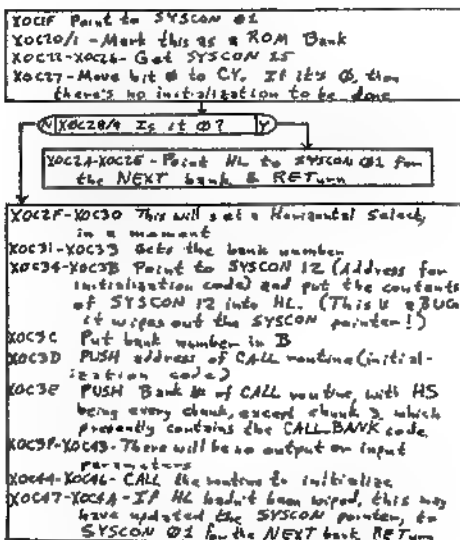 X0C1F Point to SYSCON Ø1
X0C20/1 - Mark this as a ROM Bank
X0C22-X0C26 - Get SYSCON 15
X0C27 - Move bit Ø to CY. If it's Ø, then
there's no initialization to be done
N X0C28/9 Is it Ø? Y
X0C2A-X0C2E - Point HL to SYSCON Ø1 for
the NEXT bank & RETurn
X0C2F-X0C30 This will set a Horizontal Select,
in a moment
X0C31-X0C33 Gets the bank number
X0C34-X0C3B Point to SYSCON 12 (Address for
initialization code) and put the contents
of SYSCON 12 into HL. (This is a BUG
it wipes out the SYSCON pointer!)
X0C3C Put bank number in B
X0C3D PUSH address of CALL routine (initial-
ization code)
X0C3E PUSH Bank # of CALL routine, with HS
being every chunk, except chunk 3, which
presently contains the CALL.BANK code.
X0C3F-X0C43 - There will be no output or input
parameters
X0C44-X0C46 - CALL the routine to initialize
X0C47-X0C4A - If HL hadn't been wiped, this may
have updated the SYSCON pointer, to
SYSCON Ø1 for the NEXT bank RETurn